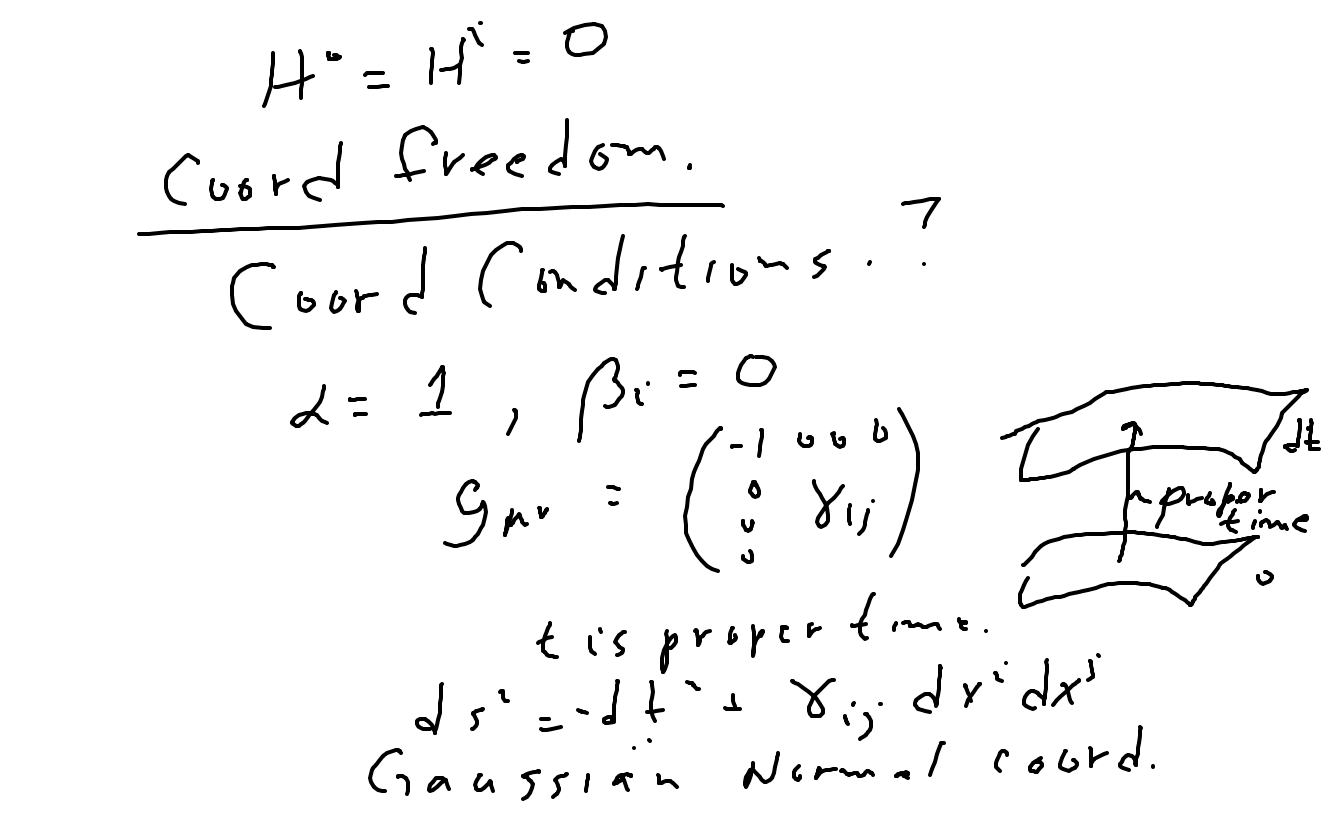 H⁰ = Hⁱ = 0
Coord freedom.
Coord Conditions. ?
α = 1 , βᵢ = 0
g_μν = ( -1 0 0 0
0
0 γᵢⱼ
0 )
dt
proper
time
0
t is proper time.
ds² = -dt² + γᵢⱼ dxⁱ dxʲ
Gaussian Normal coord.